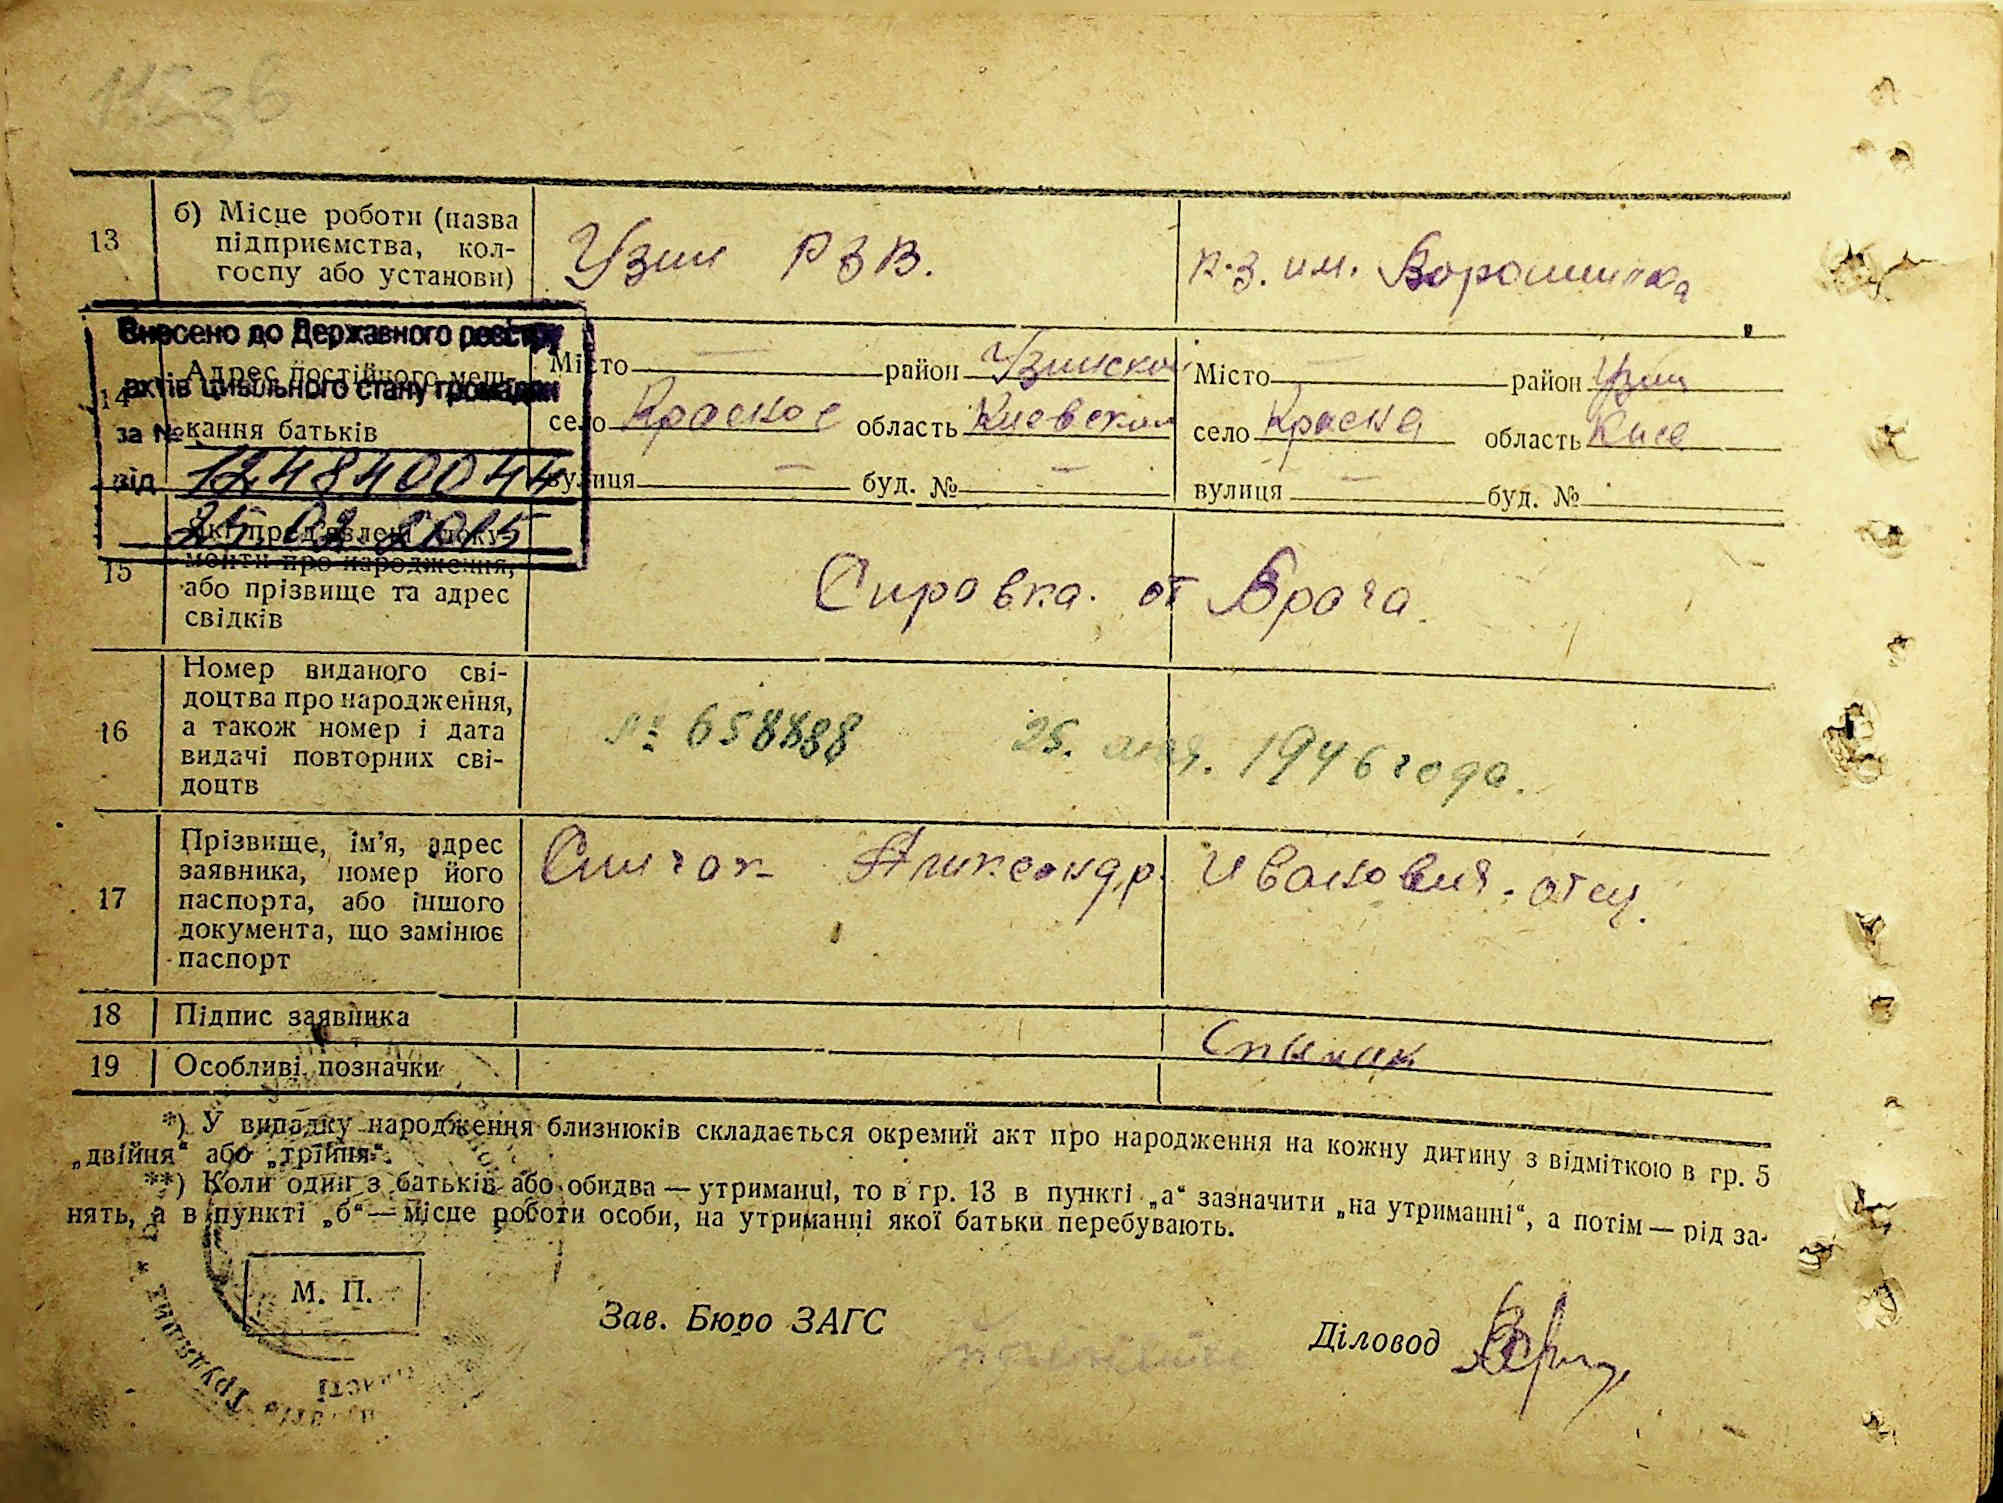 13
б) Місце роботи (назва
підприємства, кол-
госпу або установи)
Узин РЗВ.
к-з. им. Ворошилова
Внесено до Державного реєстру
актів цивільного стану громадян
за №
124840044
від
25 02 2015
14
Адрес постійного меш-
кання батьків
Місто — район Узинской
село Красное область Киевской
вулиця — буд. № —
Місто — район Узин
село Красна область Киев
вулиця — буд. №
15
Які пред'явлені доку-
менти про народження,
або прізвище та адрес
свідків
Справка. от Врача.
16
Номер виданого сві-
доцтва про народження,
а також номер і дата
видачі повторних сві-
доцтв
№ 658888 25. 1946 года.
17
Прізвище, ім'я, адрес
заявника, номер його
паспорта, або іншого
документа, що замінює
паспорт
Александр Иванович. отец.
18 Підпис заявника
19 Особливі позначки
*) У випадку народження близнюків складається окремий акт про народження на кожну дитину з відміткою в гр. 5
„двійня“ або „трійня“.
**) Коли один з батьків або обидва — утриманці, то в гр. 13 в пункті „а“ зазначити „на утриманні“, а потім — рід за-
нять, а в пункті „б“ — місце роботи особи, на утриманні якої батьки перебувають.
М. П.
Зав. Бюро ЗАГС
Діловод